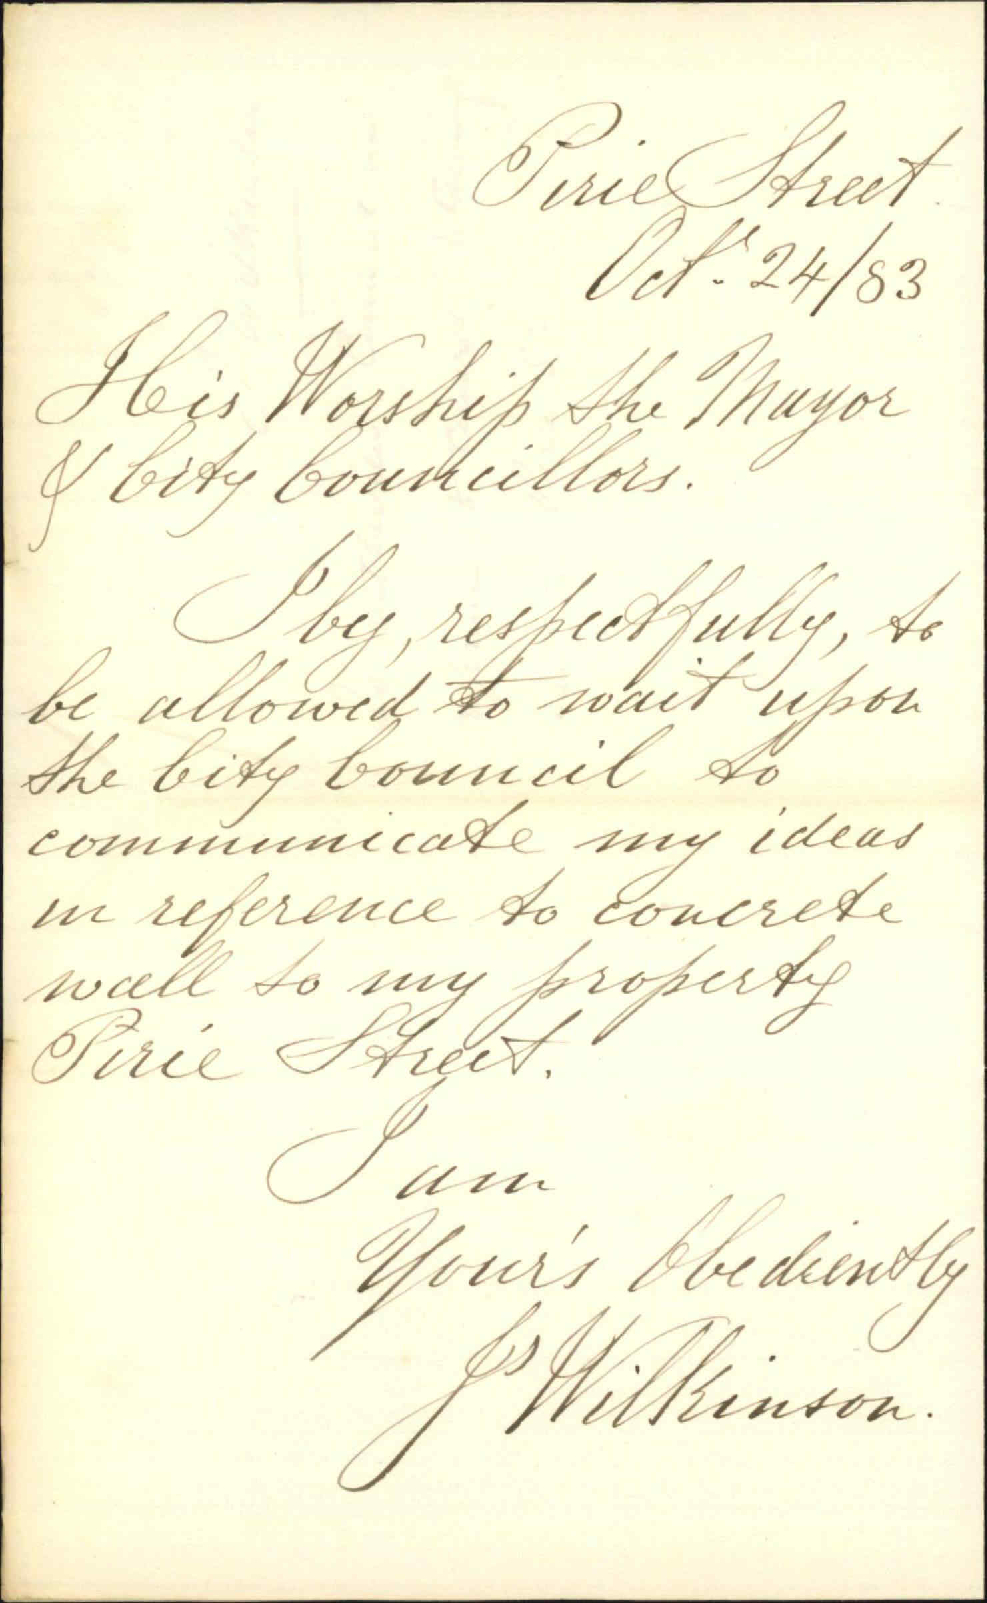 Pirie Street
Octr. 24/83
His Worship the Mayor
& City Councillors.
I beg, respectfully, to
be allowed to wait upon
the City Council to
communicate my ideas
in reference to concrete
wall to my property
Pirie Street.
I am
Your's Obediently
Js Wilkinson.